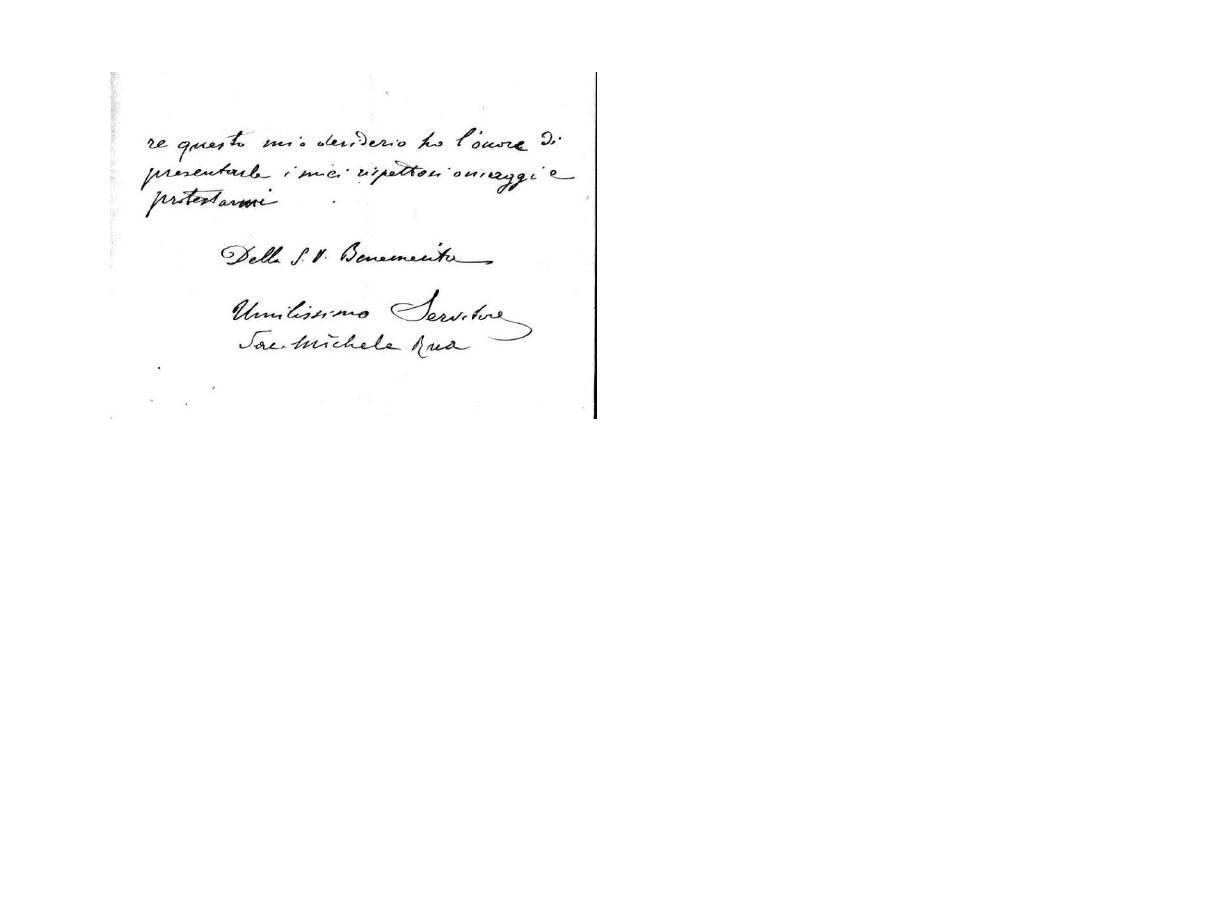 re questo mio desiderio ho l'onore di
presentarle i miei rispettosi omaggi e
protestarmi
Della S. V. Benemerita
Umilissimo Servitore
Sac. Michele Rua